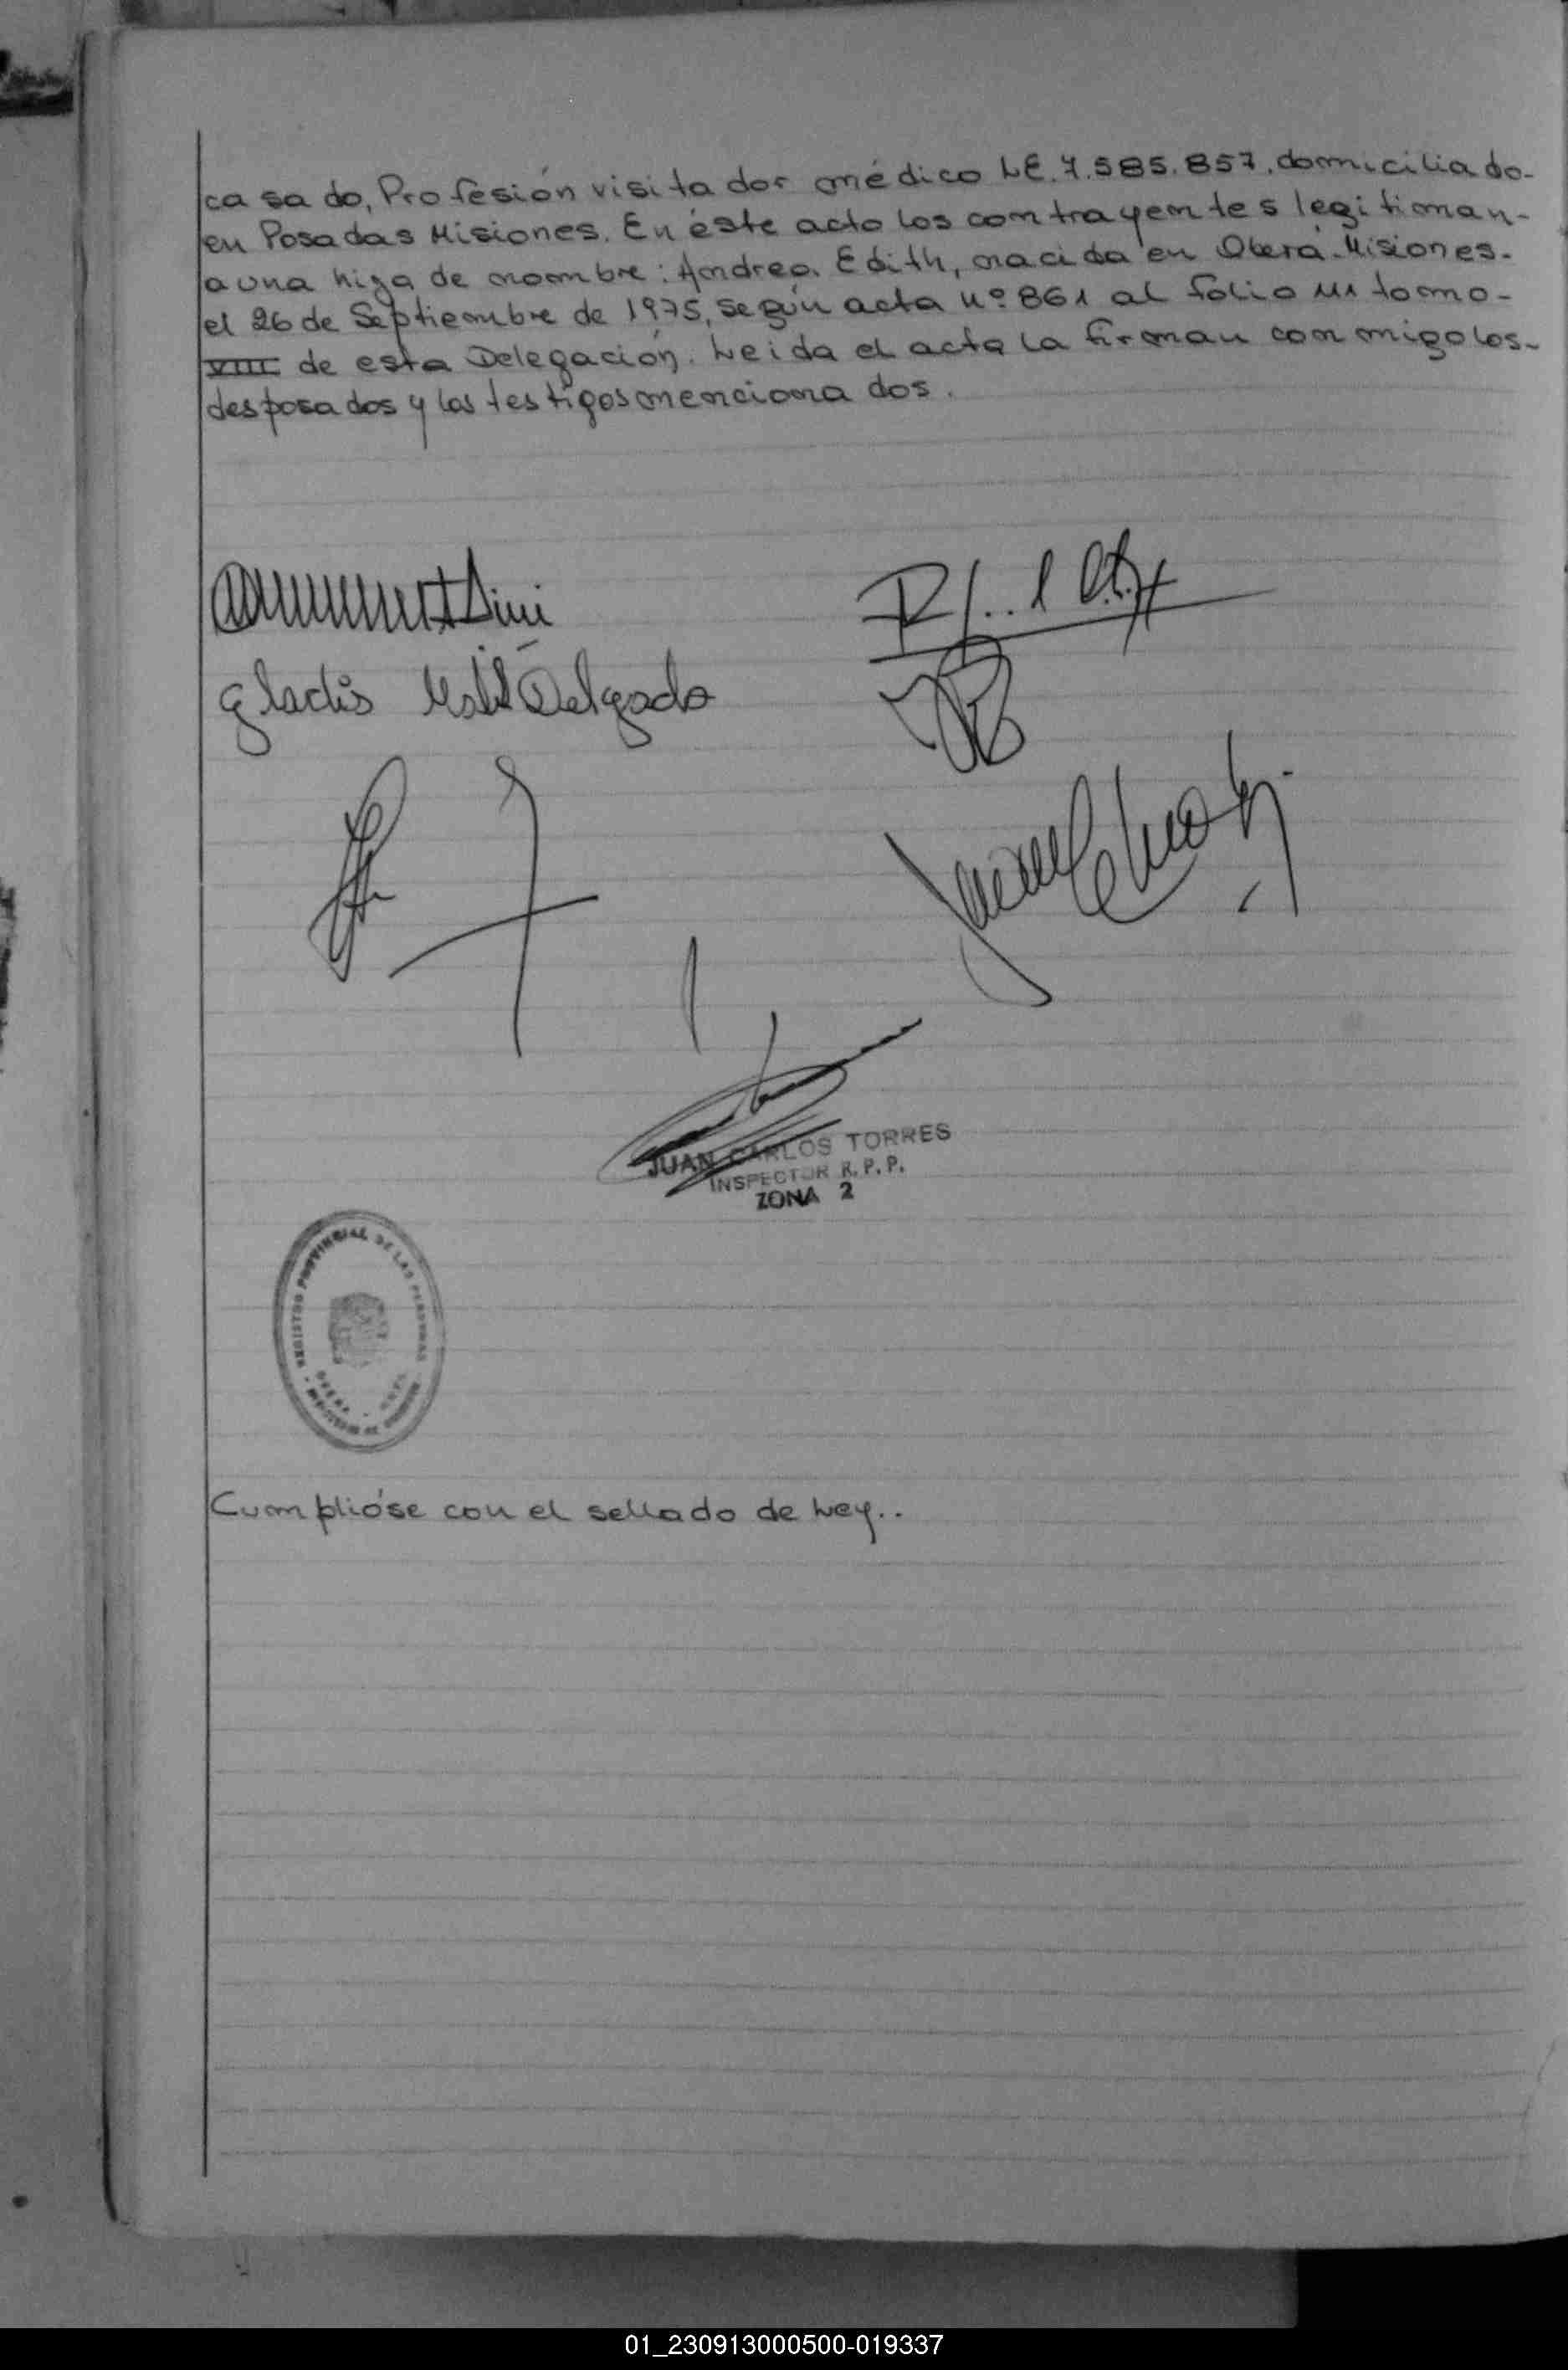 casado, Profesión visitador médico LE. 7.585.857, domiciliado-
en Posadas Misiones. En éste acto los contrayentes legitiman-
a una hija de nombre: Andrea Edith, nacida en Oberá-Misiones-
el 26 de Septiembre de 1975, según acta nº 861 al folio 111 tomo-
VIII de esta Delegación. Leida el acta la firman conmigo los-
desposados y los testigos mencionados.
Gladis Delgado
JUAN CARLOS TORRES
INSPECTOR R.P.P.
ZONA 2
REGISTRO PROVINCIAL DE LAS PERSONAS
Cumplióse con el sellado de Ley..
01_230913000500-019337